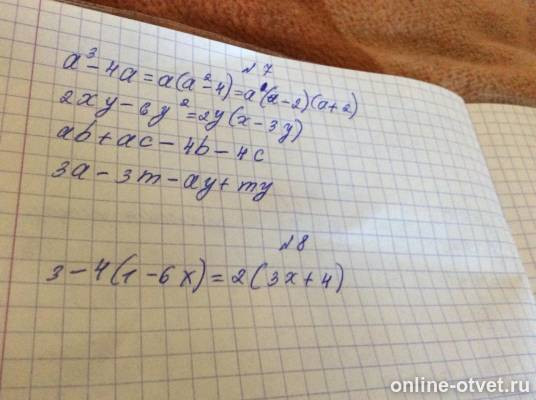 №7
a³-4a=a(a²-4)=a(a-2)(a+2)
2xy-6y²=2y(x-3y)
ab+ac-4b-4c
3a-3m-ay+my
№8
3-4(1-6x)=2(3x+4)
online-otvet.ru